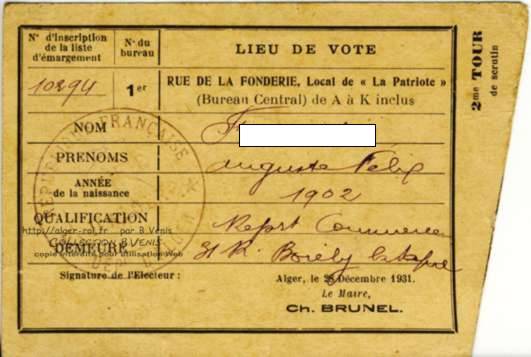 N° d'inscription de la liste d'émargement
N° du bureau
LIEU DE VOTE
10294
1er
RUE DE LA FONDERIE, Local de « La Patriote »
(Bureau Central) de A à K inclus
2me TOUR
de scrutin
RÉPUBLIQUE FRANÇAISE
NOM
PRENOMS
Auguste Felix
ANNÉE
de la naissance
1902
QUALIFICATION
Commerce
http://alger-roi.fr par B.Venis
COLLECTION B.VENIS
DEMEURE
copie interdite pour utilisation Web
Signature de l'Electeur :
Alger, le Décembre 1931.
Le Maire,
CH. BRUNEL.